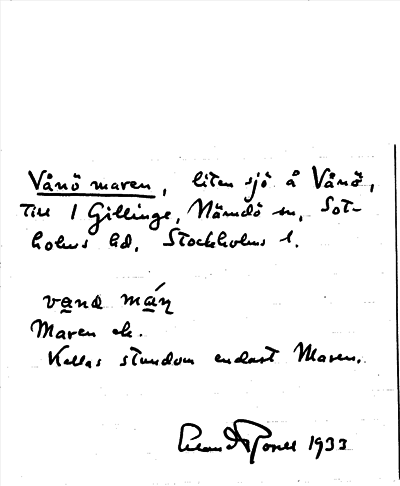 Vånö maren, liten sjö å Vånö,
Till 1 Gillinge, Nämdö sn, Sot-
holms hd, Stockholms l.
Maren ek.
Kallas stundom endast Maren.
1933